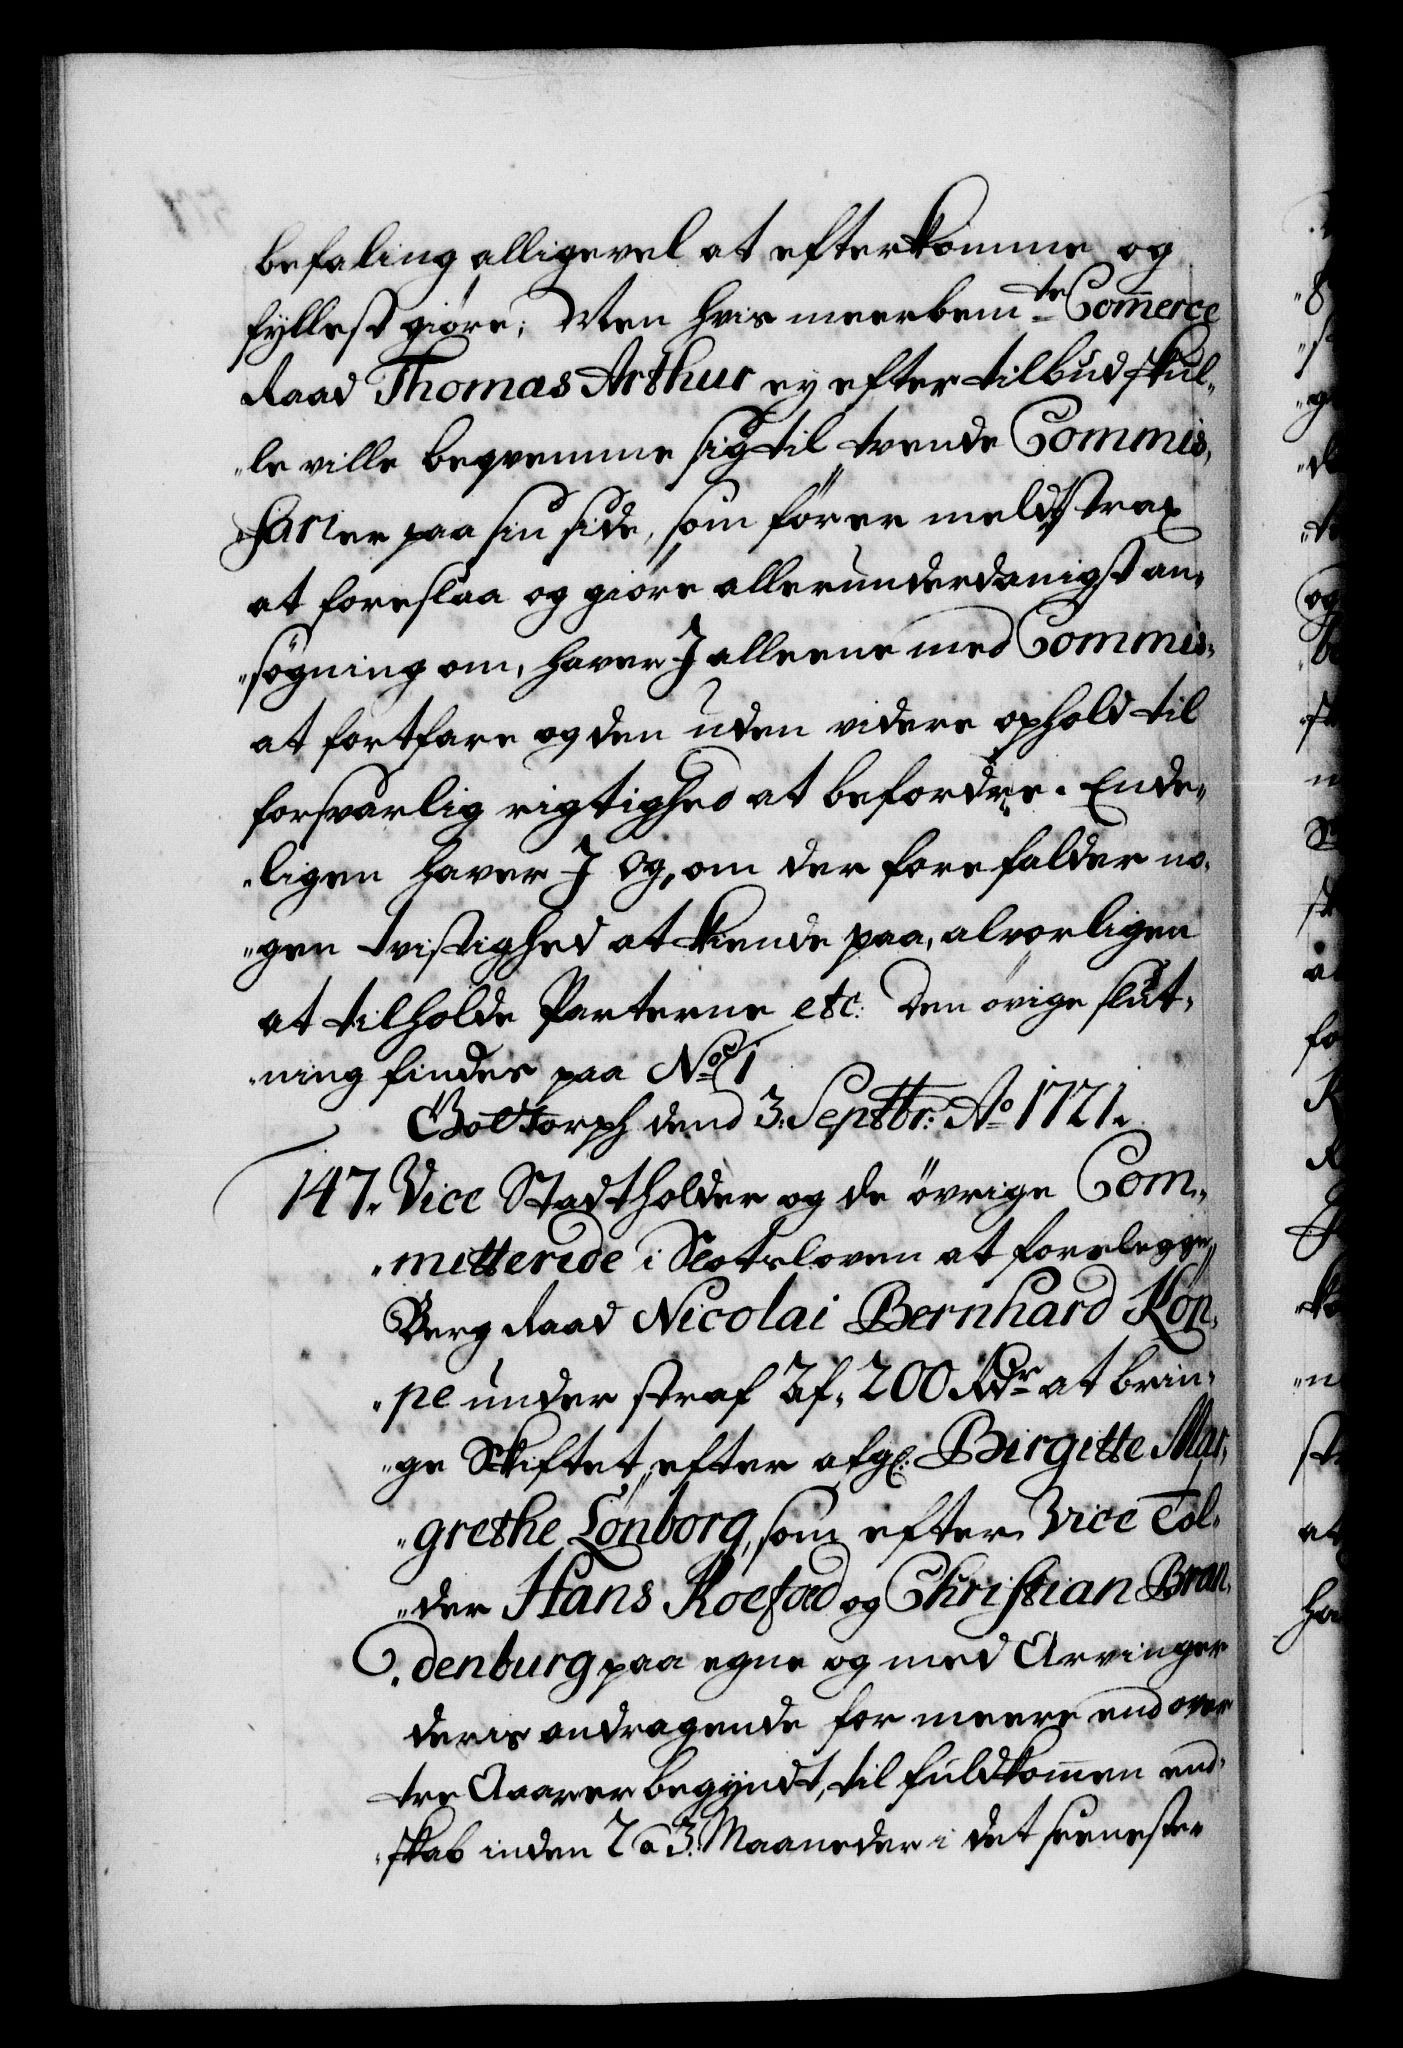 befaling alligevel at efterkomme og
fyllest giöre; Men hvis meerbemte Com̄erce
Raad Thomas Arthur ey efter tilbud skul„
„le ville beqvemme sig til tvende Commis„
Sarier paa sin side, som för er meldt strax
at foreslaa og giöre allerunderdanigst an„
„sögning om, haver I alleene med Commis:
at fortfare og den uden videre ophold til
forsvarlig rigtighed at befordre. Ende„
„ligen haver I og, om der forefalder no„
„gen tvistighed at kiende paa, alvorligen
at tilholde Parterne etc: Den övrige slut„
„ning findes paa No 1
Gottorph dend 3. Septbr: Ao 1721.
147. Vice Stadtholder og de övrige Com„
„mitterede i Slotsloven at forelegge
Berg Raad Nicolai Bernhard Kön„
„pe under straf af 200 Rdr at brin„
„ge Skiftet efter afgl: Birgitte Mar„
„grethe Lönborg, som efter Vice Tol„
„der Hans Koefoed og Christian Bran„
„denburg paa egne og med Arvinger
deris andragende for meere end over
tre Aarer begyndt, til fuldkom̄en end„
„skab inden 2 a 3. Maaneder i det seeneste